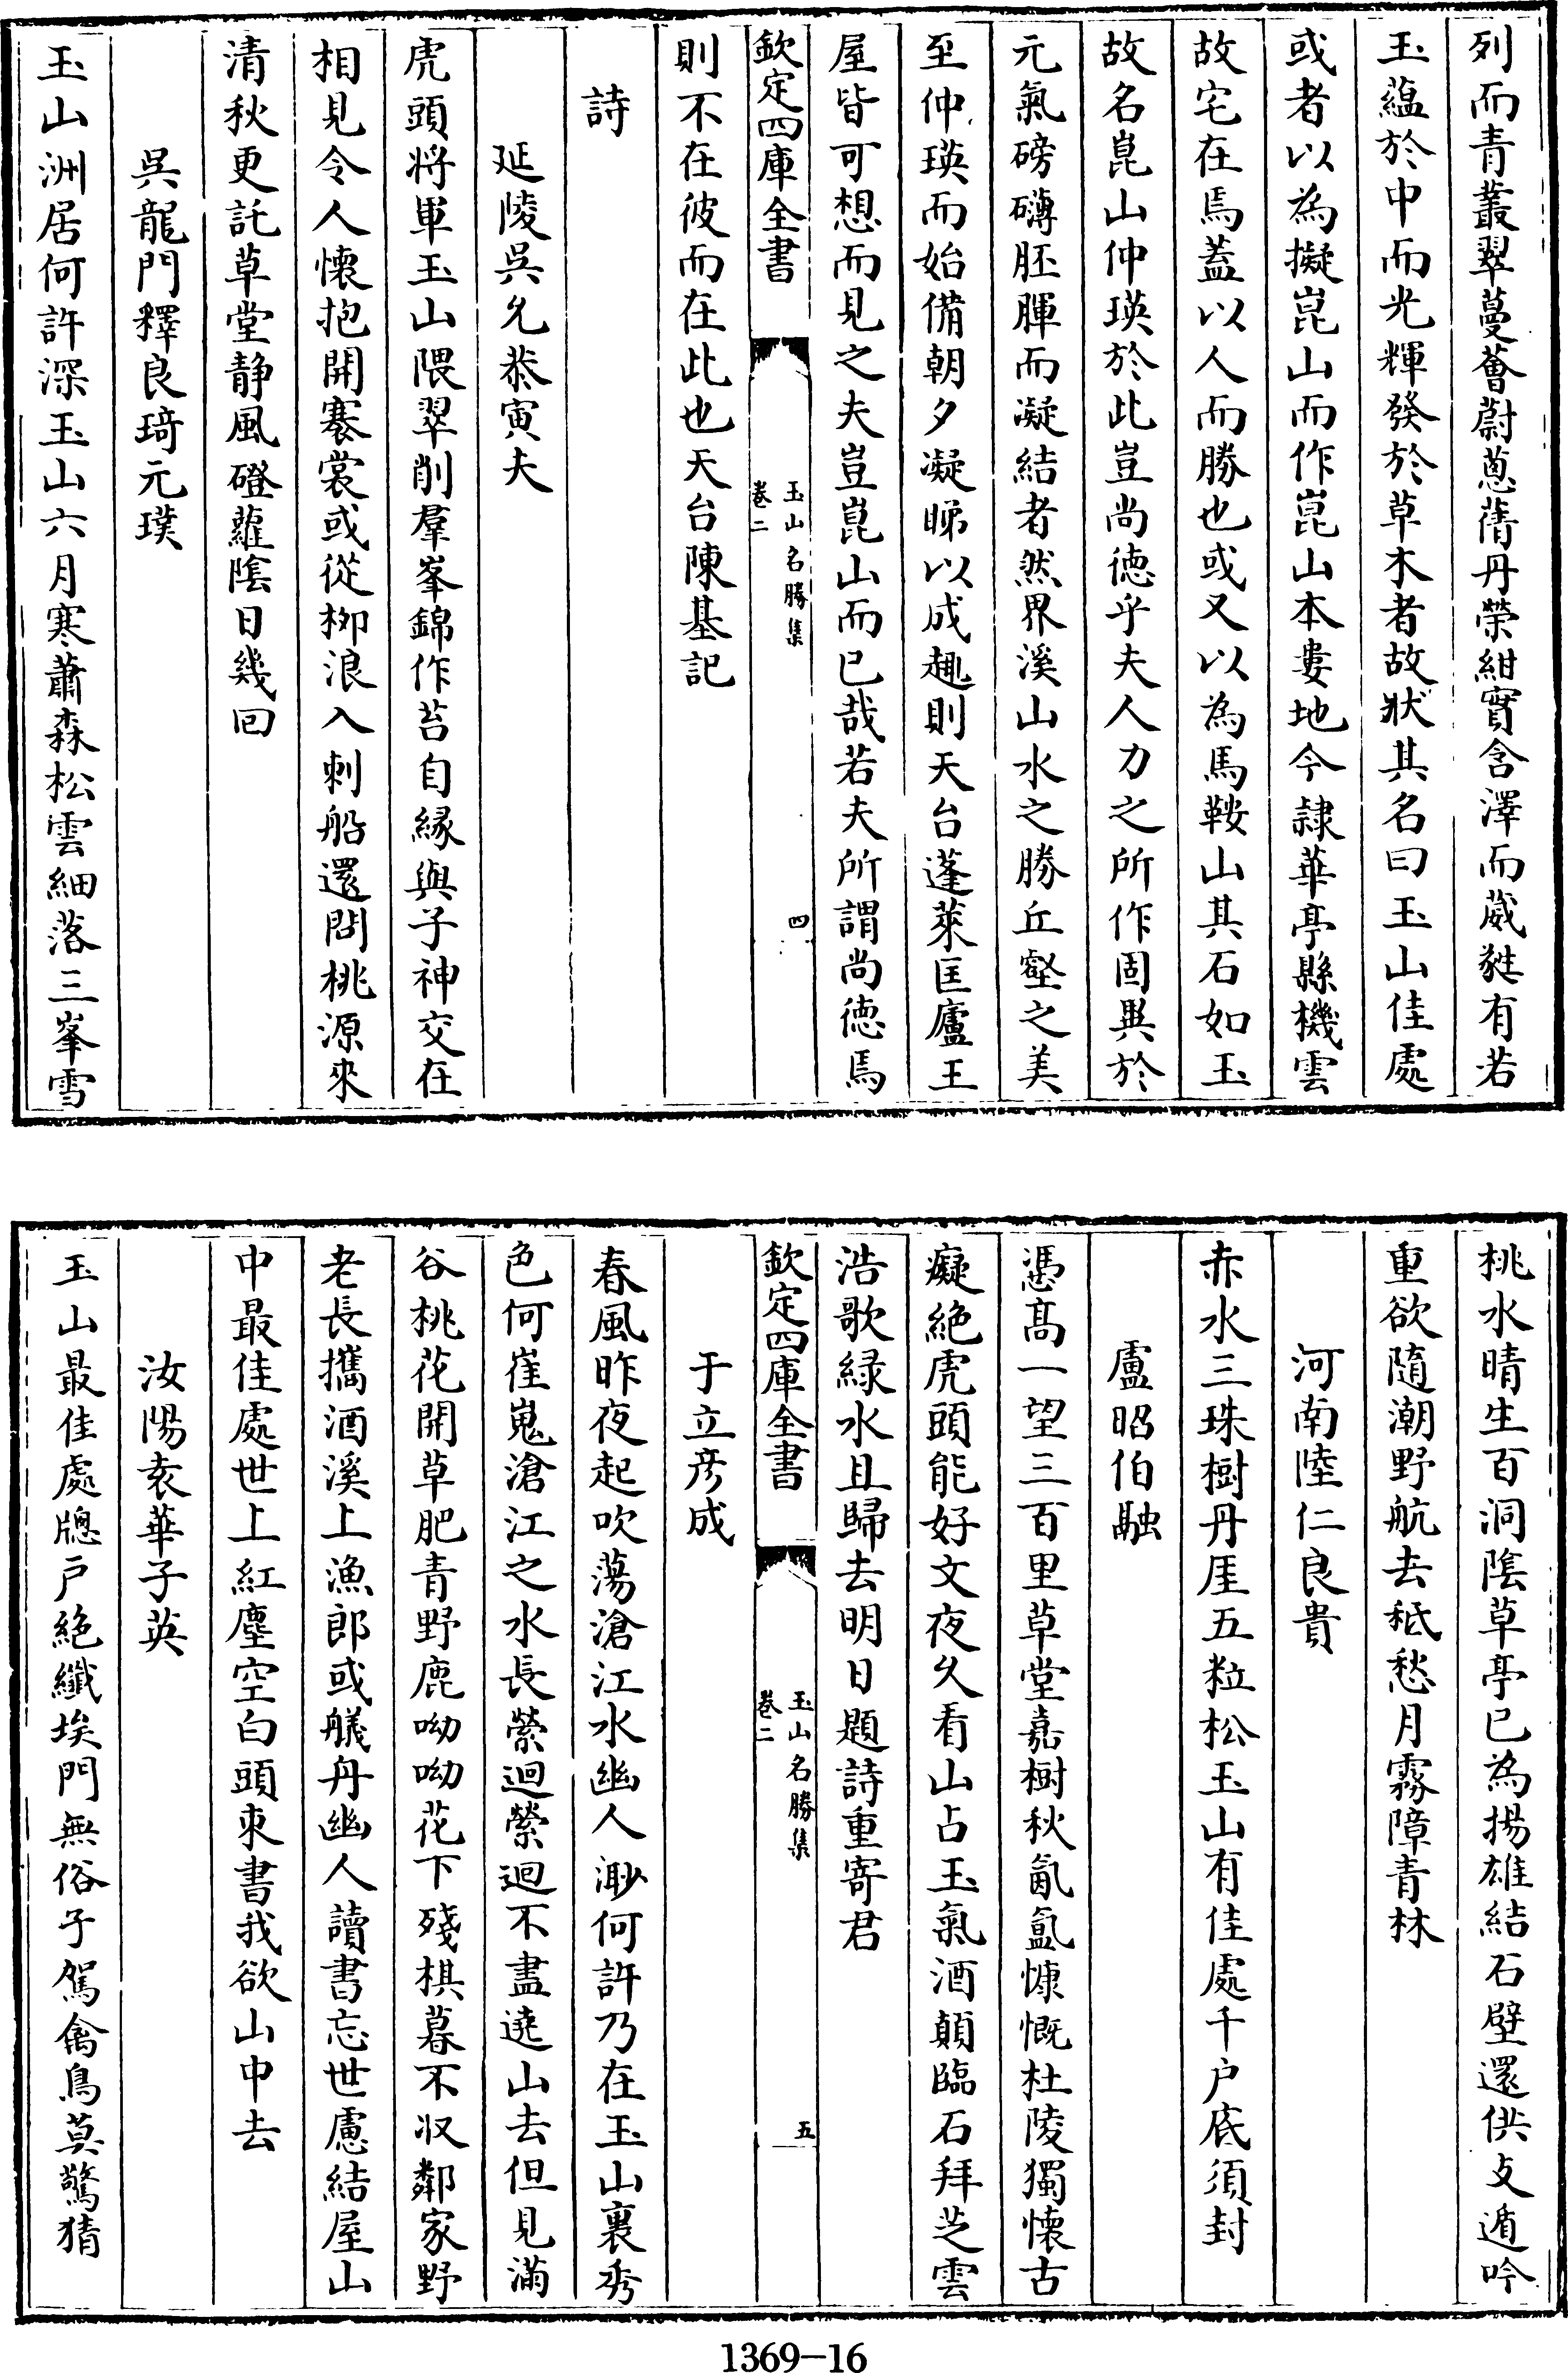 列而青叢翠蔓薈蔚蔥蒨丹榮紺實含澤而葳蕤有若
玉蘊於中而光輝發於草木者故狀其名曰玉山佳處
或者以為擬崑山而作崑山本婁地今隸華亭縣機雲
故宅在焉蓋以人而勝也或又以為馬鞍山其石如玉
故名崑山仲瑛於此豈尚徳乎夫人力之所作固異於
元氣磅礴胚腪而凝結者然界溪山水之勝丘壑之美
至仲瑛而始備朝夕凝睇以成趣則天台蓬萊匡廬王
屋皆可想而見之夫豈崑山而已哉若夫所謂尚徳焉
欽定四庫全書
玉山名勝集
卷二
四
則不在彼而在此也天台陳基記
詩
延陵吳允恭寅夫
虎頭將軍玉山隈翠削羣峯錦作苔自緣與子神交在
相見令人懷抱開褰裳或從栁浪入刺船還問桃源來
清秋更託草堂静風磴蘿陰日幾回
吳龍門釋良琦元璞
玉山洲居何許深玉山六月寒蕭森松雲細落三峯雪
桃水晴生百洞陰草亭已為揚雄結石壁還供支遁吟
重欲隨潮野航去秪愁月霧障青林
河南陸仁良貴
赤水三珠樹丹厓五粒松玉山有佳處千户底須封
盧昭伯融
憑髙一望三百里草堂嘉樹秋氤氲慷慨杜陵獨懷古
癡絶虎頭能好文夜久看山占玉氣酒顛臨石拜芝雲
浩歌緑水且歸去明日題詩重寄君
欽定四庫全書
玉山名勝集
卷二
五
于立彦成
春風昨夜起吹蕩滄江水幽人渺何許乃在玉山裏秀
色何崔嵬滄江之水長縈迴縈迴不盡遶山去但見滿
谷桃花開草肥青野鹿呦呦花下殘棋暮不収鄰家野
老長攜酒溪上漁郎或艤舟幽人讀書忘世慮結屋山
中最佳處世上紅塵空白頭東書我欲山中去
汝陽袁華子英
玉山最佳處牕戸絶纖埃門無俗子駕禽鳥莫驚猜
1369-16